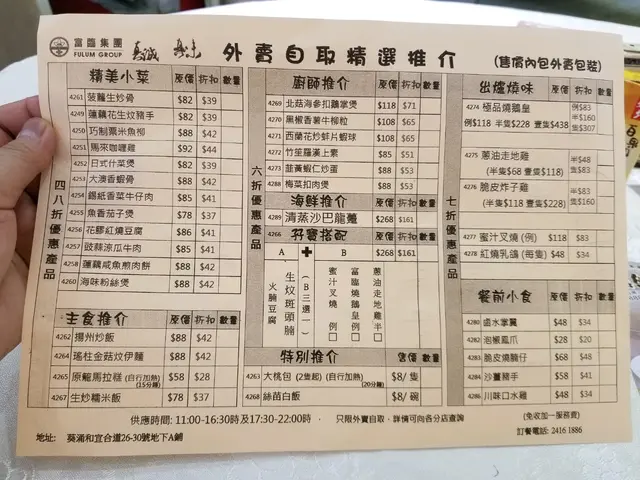 富臨集團
FULUM GROUP
外賣自取精選推介
(售價內包外賣包裝)
精美小菜 原價 折扣 數量
四八折優惠產品
4261 菠蘿生炒骨 $82 $39
4249 蓮藕花生炆豬手 $82 $39
4250 巧制粟米魚柳 $88 $42
4251 馬來咖喱雞 $92 $44
4252 日式什菜煲 $82 $39
4253 大澳香蝦骨 $88 $42
4254 錫紙香菜牛仔肉 $85 $41
4255 魚香茄子煲 $78 $37
4256 花膠紅燒豆腐 $86 $41
4257 豉蒜涼瓜牛肉 $85 $41
4258 蓮藕咸魚煎肉餅 $88 $42
4260 海味粉絲煲 $88 $42
主食推介 原價 折扣 數量
4262 揚州炒飯 $88 $42
4264 瑤柱金菇炆伊麵 $88 $42
4265 原籠馬拉糕 (自行加熱) $58 $28
(15分鐘)
4267 生炒糯米飯 $78 $37
廚師推介 原價 折扣 數量
六折優惠產品
4269 北菇海參扣鵝掌煲 $118 $71
4270 黑椒香薯牛柳粒 $108 $65
4271 西蘭花炒蚌片蝦球 $108 $65
4272 竹笙羅漢上素 $85 $51
4273 韮黃蝦仁炒蛋 $88 $53
4288 梅菜扣肉煲 $88 $53
海鮮推介 原價 折扣 數量
4289 清蒸沙巴龍躉 $268 $161
4266 孖寶搭配
A + B $268 $161
火腩豆腐
生炆斑頭腩
(B三選一)
蜜汁叉燒 例
富臨燒鵝皇 例
蔥油走地雞半
特別推介 售價 數量
4263 大桃包 (2隻起) (自行加熱) $8/ 隻
(20分鐘)
4268 絲苗白飯 $8/ 碗
出爐燒味 原價 折扣 數量
七折優惠產品
4274 極品燒鵝皇 例$83
例$118 半隻$228 壹隻$438 半$160
隻$307
4275 蔥油走地雞 半$48
(半隻$68 壹隻$118) 隻$83
4276 脆皮炸子雞 半$83
(半隻$118 壹隻$228) 隻$160
4277 蜜汁叉燒 (例) $118 $83
4278 紅燒乳鴿 (每隻) $48 $34
餐前小食 原價 折扣 數量
4280 鹵水掌翼 $48 $34
4282 泡椒鳳爪 $28 $20
4283 脆皮燒腩仔 $68 $48
4284 沙薑豬手 $58 $41
4286 川味口水雞 $48 $34
供應時間: 11:00-16:30時及17:30-22:00時 · 只限外賣自取, 詳情可向各分店查詢
(免收加一服務費)
地址: 葵涌和宜合道26-30號地下A鋪
訂餐電話: 2416 1886